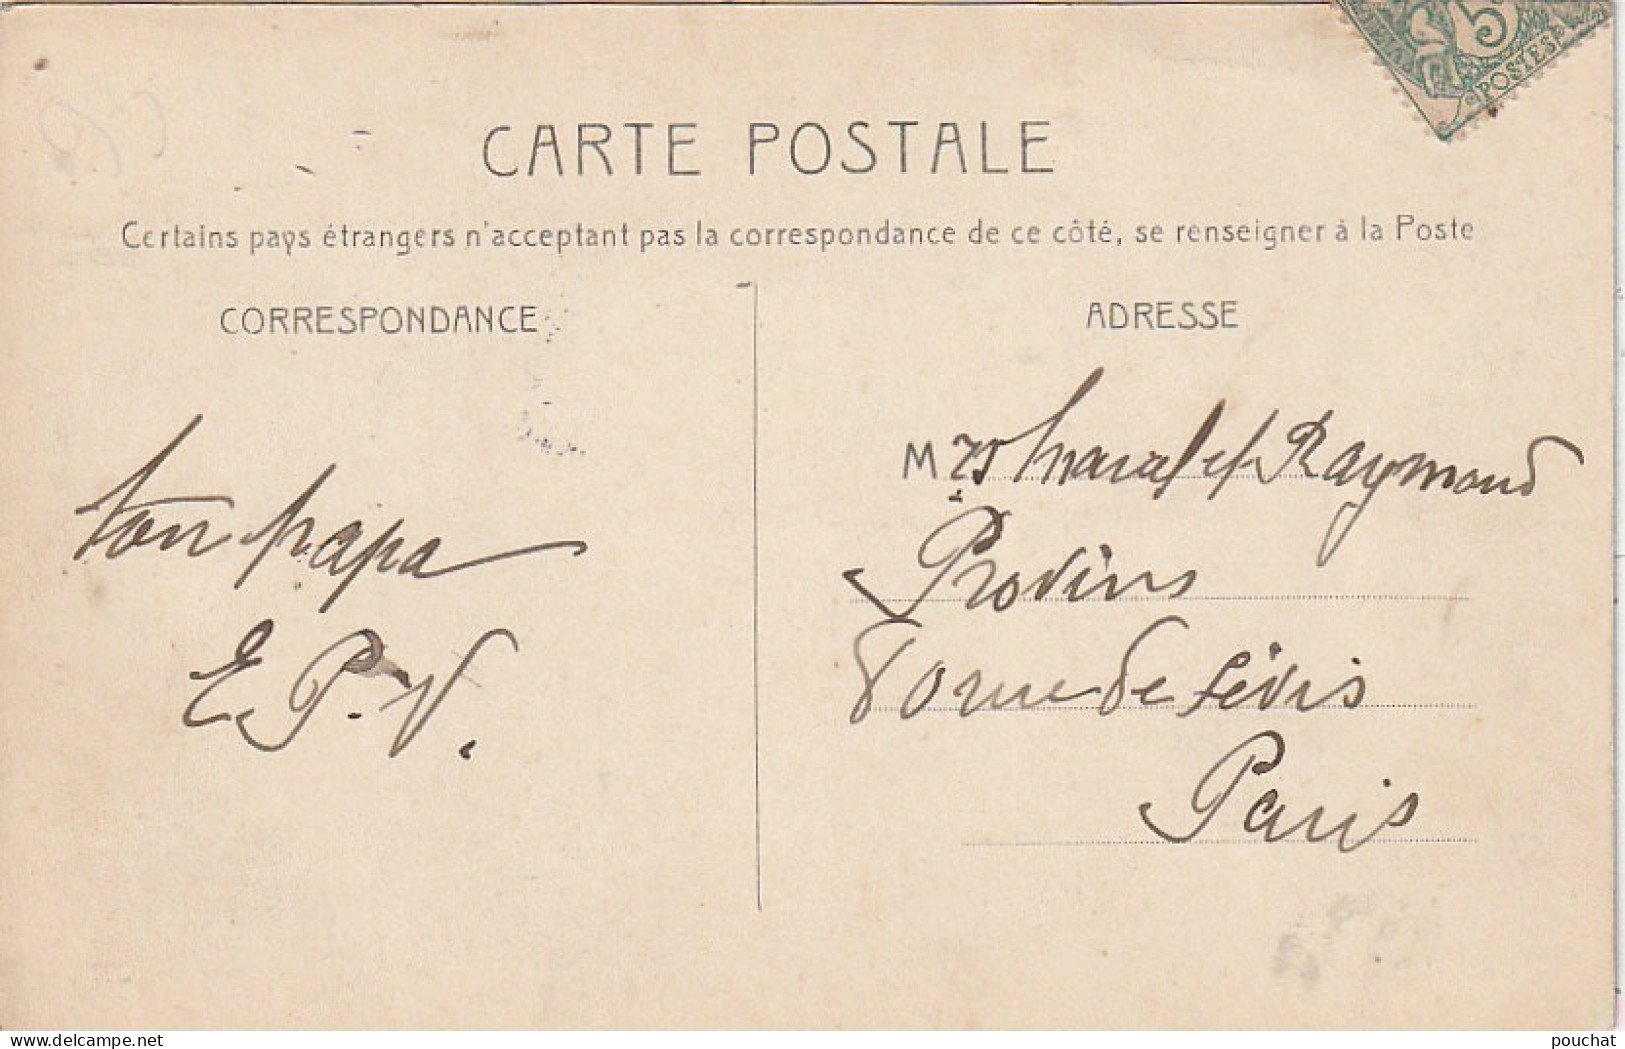 5
POSTES
CARTE POSTALE
Certains pays étrangers n'acceptant pas la correspondance de ce côté, se renseigner à la Poste
CORRESPONDANCE
ton papa
E. P. V.
ADRESSE
M rs et Raymond
Provins
rue de Lévis
Paris
delcampe.net
pouchat